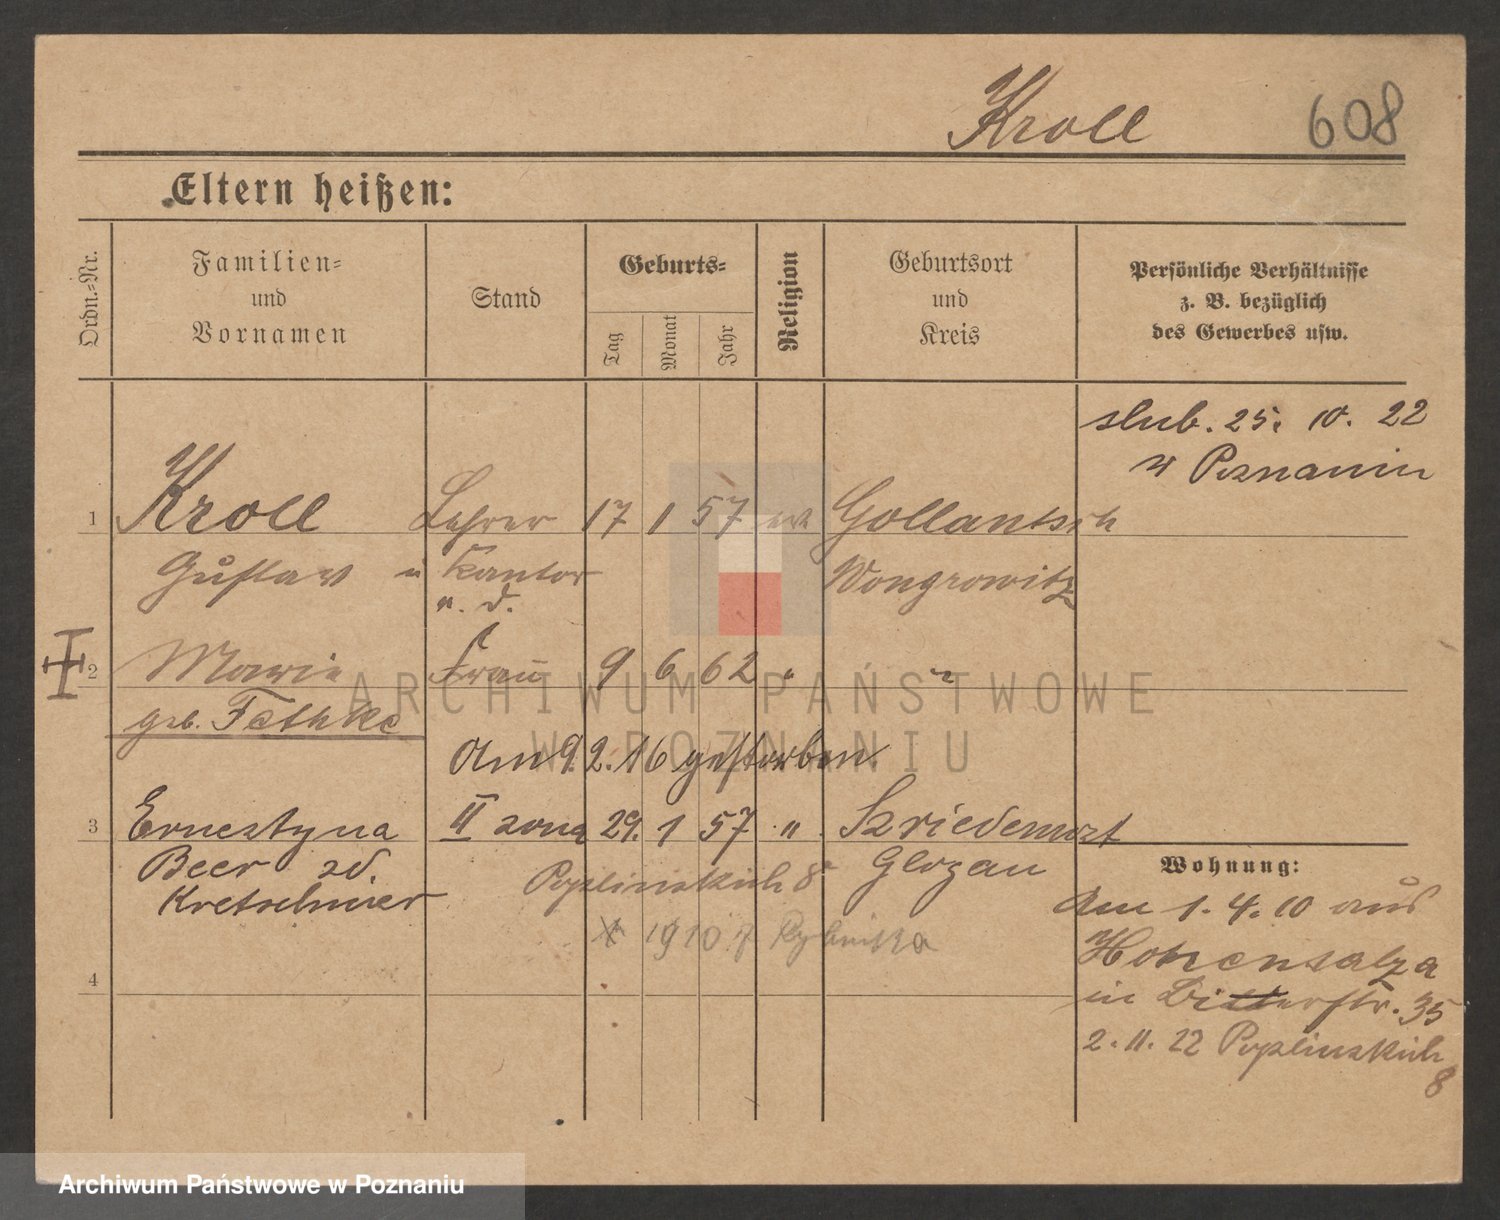 Kroll 608
Eltern heißen:
Ordn.-Nr.
Familien-
und
Vornamen
Stand
Geburts-
Tag
Monat
Jahr
Religion
Geburtsort
und
Kreis
Persönliche Verhältnisse
z. B. bezüglich
des Gewerbes usw.
slub. 25. 10. 22
w Poznaniu
1 Kroll Lehrer 17 1 57 Gollantsch
Gustav u Kantor Wongrowitz
a. D.
2 Marie Frau 9 6 62 " "
geb. Fethke
Am 9. 2. 16 gestorben.
3 Ernestyna II zona 29. 1 57 "
Beer zd. Glogau
Kretschmer Poplinskich 8
Wohnung:
Am 1. 4. 10 aus
Hohensalza
in 35
2. 11. 22 Poplinskich
8
4
ARCHIWUM PAŃSTWOWE
W POZNANIU
Archiwum Państwowe w Poznaniu